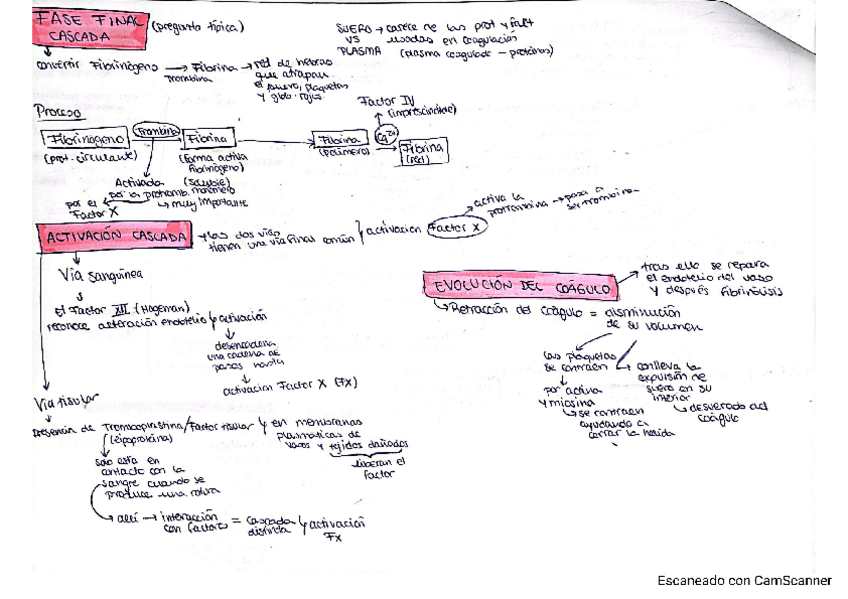 FASE FINAL (pregunta típica)
CASCADA
SUERO → carece de las prot y fact
VS usadas en coagulación
PLASMA (plasma coagulado - proteínas)
convertir Fibrinógeno → Fibrina → red de hebras
Trombina
que atrapan
el suero, plaquetas
y glob. rojos
Proceso
Factor IV
(imprescindible)
Fibrinógeno Trombina Fibrina → Fibrina Ca2+ Fibrina
(prot. circulante) (forma activa (polímero) (red)
fibrinógeno)
(soluble)
monómero
Activada
por la protromb.
muy importante
por el
Factor X
ACTIVACIÓN CASCADA → las dos vías
tienen una vía final común y activación Factor X
activa la
protrombina → pasa a
ser trombina
Vía sanguínea
El Factor XII (Hageman)
reconoce alteración endotelio y activación
desencadena
una cadena de
pasos hasta
activación Factor X (FX)
Vía tisular
Presencia de Tromboplastina/Factor tisular y en membranas
(lipoproteína) plasmáticas de
vasos y tejidos dañados
liberan el
factor
solo está en
contacto con la
sangre cuando se
produce una rotura
allí → interacción = cascada y activación
con factores distinta FX
EVOLUCIÓN DEL COÁGULO
tras ello se repara
el endotelio del vaso
y después fibrinolisis
Retracción del coágulo = disminución
de su volumen
las plaquetas
se contraen
por actina
y miosina
se contraen
ayudando a
cerrar la herida
conlleva la
expulsión de
suero en su
interior
desuerado del
coágulo
Escaneado con CamScanner